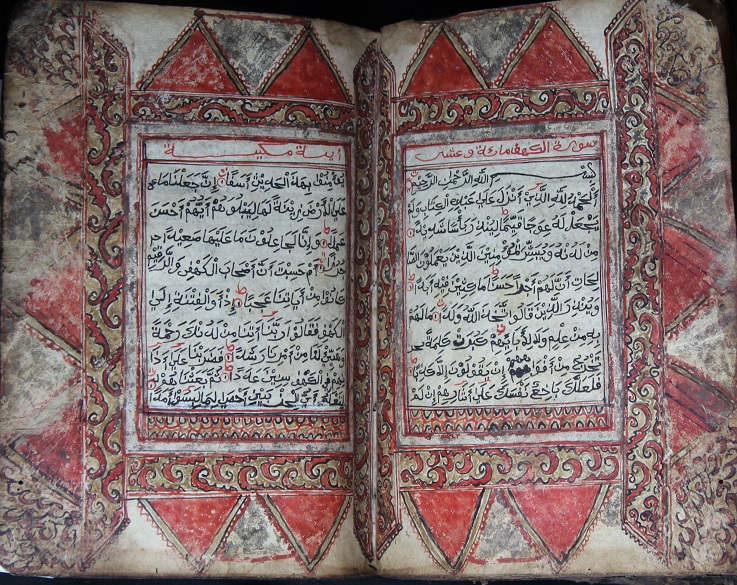 سورة الكهف مائة وعشر
بسم الله الرحمن الرحيم
الحمد لله الذي أنزل على عبده الكتاب ولم
يجعل له عوجا قيما لينذر بأسا شديدا
من لدنه ويبشر المؤمنين الذين يعملون الصا
لحات أن لهم أجرا حسنا ماكثين فيه أبدا
وينذر الذين قالوا اتخذ الله ولدا ما لهم
به من علم ولا لأبائهم كبرت كلمة
تخرج من أفواههم إن يقولون إلا كذبا
فلعلك باخع نفسك على أثارهم إن لم
اية مكية
يؤمنوا بهذا الحديث أسفا إنا جعلنا ما
على الأرض زينة لها لنبلوهم أيهم أحسن
عملا وإنا لجاعلون ما عليها صعيدا
جرزا أم حسبت أن أصحاب الكهف والرقيم
كانوا من أياتنا عجبا إذ أوى الفتية إلى
الكهف فقالوا ربنا أتنا من لدنك رحمة
وهيئ لنا من أمرنا رشدا فضربنا على أذا
نهم في الكهف سنين عددا ثم بعثناهم
لنعلم أي الحزبين أحصى لما لبثوا أمدا